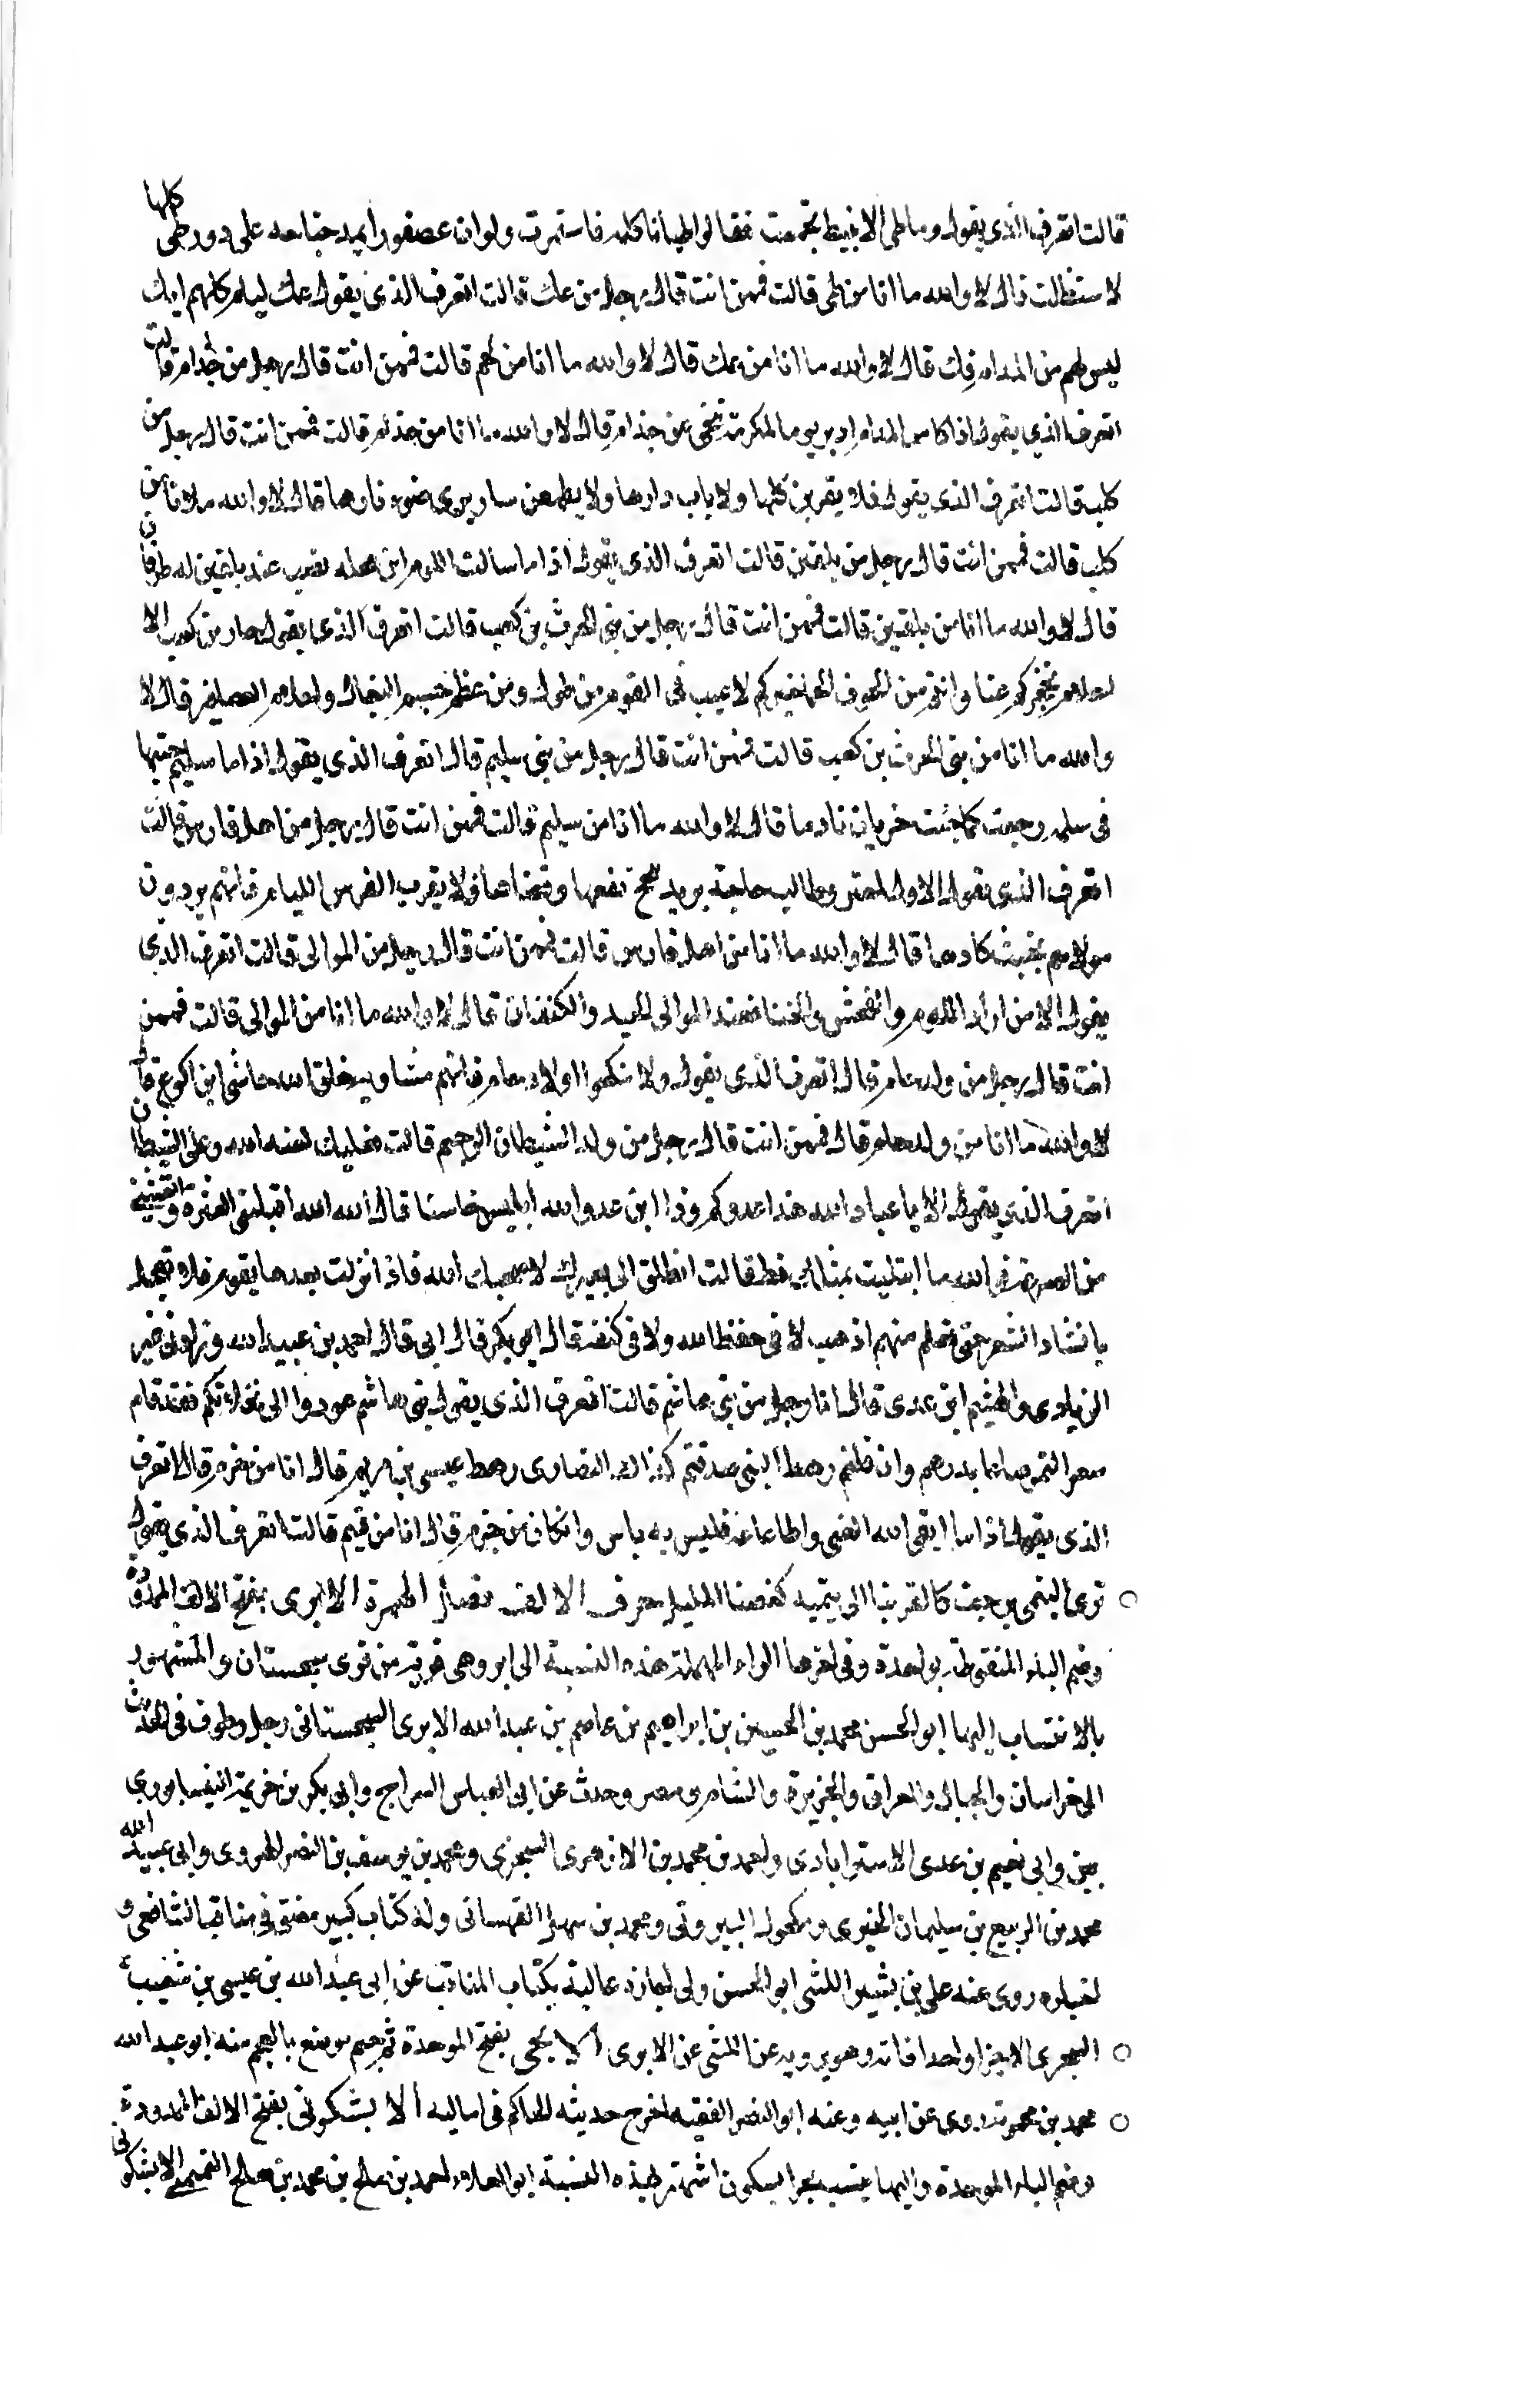 قالت اتعرف الذى يقول وما طى الا نبيط تجمعت فقالوا طيانا كلمه فاستمرت ولو ان عصفورا يمد جناحه على دور طى كلها
لاستظلت قال لا والله ما انا من طى قالت فممن انت قال رجل من عك قالت اتعرف الذى يقول عك ليام كلهم
ليس لهم من الملام فك قال لا والله ما انا من عك قال لا والله ما انا من لهم قالت فممن انت قال رجل من جذام قالت
اتعرف الذي يقول اذا كاس المدام ادير يوما لمكرمة تنحى عن جذام قال لا والله ما انا من جذام قالت فممن انت قال رجل من
كلب قالت اتعرف الذى يقول فلا يقربن كلبا ولا باب دارها ولا يطمعن سار يرى ضوء نارها قال لا والله ما انا من
كلب قالت فممن انت قال رجل من بلقين قالت اتعرف الذى يقول اذا ما سالت اللوم اين محله تصب عند بلقين له طرفان
قال لا والله ما انا من بلقين قالت فممن انت قال رجل من بنى الحرث بن كعب قالت اتعرف الذى يقول حار بن كعب الا
احلام تحجزكم عنا وانتم من الجوف الجماخير كم لا عيب فى القوم من طول ومن عظم جسم البغال واحلام العصافير قال لا
والله ما انا من بنى الحرث بن كعب قالت فممن انت قال رجل من بنى سليم قال اتعرف الذى يقول اذا ما سليم جئتها
فى ملمه رجعت كما جئت خزيان نادما قال لا والله ما انا من سليم قالت فممن انت قال رجل من اهل فارس قالت
اتعرف الذى يقول الا قل لمعتر وطالب حاجة يريد نجح نفعها وقضاها فلا يقرب الفرس الليام فانهم يردون
مولاهم بخبث كادها قال لا والله ما انا من اهل فارس قالت فممن انت قال رجل من الموالى قالت اتعرف الذى
يقول الا من اراد اللوم والفحش والخنا فعند الموالى الجيد والكتفان قال لا والله ما انا من الموالى قالت فممن
انت قال رجل من ولد حام قال اتعرف الذى يقول ولا تنكحوا اولاد حام فانهم مشاويه خلق الله حاشى ابن اكوع قال
لا والله ما انا من ولد حام قال فممن انت قال رجل من ولد الشيطان الرجيم قالت فعليك لعنه الله وعلى الشيطان
اتعرف الذي يقول الا يا عباد الله هذا عدوكم وذا ابن عدو الله ابليس خاسئا قال الله الله اقبلنى العثرة
فوالله ما ابتليت بمثلك قط قالت انطلق الى بعيرك لا صحبك الله فاذا نزلت بعدها بقوم فلا تعجل
بانشاد الشعر حتى تعلم منهم اذهب لا فى حفظ الله ولا فى كنفه قال ابو بكر قال ابى قال احمد بن عبيد الله وزادنى غير
الزيادى والهيثم ابن عدى قال انا رجل من بنى هاشم قالت اتعرف الذى يقول بنى هاشم عودوا الى نخلاتكم فقد قام
سعر التمر صاعا بدرهم وان قلتم رهط النبى صدقتم كذاك النصارى رهط عيسى بن مريم قال انا من جرم قال اتعرف
الذى يقول اذا ما اتقى الله الفتى واطاعه فليس به باس وان كان من جرم قال انا من تيم قالت اتعرف الذي يقول
ترى التيمى يزحف كالقرنبا الى تيمية كعصا المليل حرف الالف الابرى بفتح الالف الممدودة
وضم الباء المنقوطة بواحدة وفى اخرها الراء المهملة هذه النسبة الى ابر وهى قرية من قرى سجستان والمشهور
بالانتساب اليها ابو الحسن محمد بن الحسين بن ابراهيم بن عاصم بن عبد الله الابرى السجستانى رحل وطوف فى الحديث
الى خراسان والجبال والعراق والجزيرة والشام ومصر وحدث عن ابى العباس السراج وابى بكر بن خزيمة النيسابورى
ين وابى نعيم بن عدى الاستراباذى واحمد بن محمد بن الازهرى السجزى ومحمد بن يوسف بن النضر الهروى وابى عبيد الله
محمد بن الربيع بن سليمان الجيزى ومكحول البيروتى ومحمد بن سهل القهستانى وله كتاب كبير مصنف فى مناقب الشافعى و
اخباره روى عنه على بن بشير الليثى ابو الحسن ولى اجازة عالية بكتاب المناقب عن ابى عبد الله بن عيسى بن شعيب
السجزى الا جزا واحدا فاته وهو يرويه عن الليثى عن الابرى الابجى بفتح الموحدة ثم جيم موضع بالعجم منه ابو عبد الله
محمد بن محمويه روى عن ابيه وعنه ابو النضر الفقيه اخرج حديثه الحاكم فى اماليه الابسكونى بفتح الالف الممدودة
وضم الباء الموحدة واليها ينسب بحر ابسكون اشتهر بهذه النسبة ابو العلاء احمد بن صالح بن محمد بن صالح التميمى الابسكونى